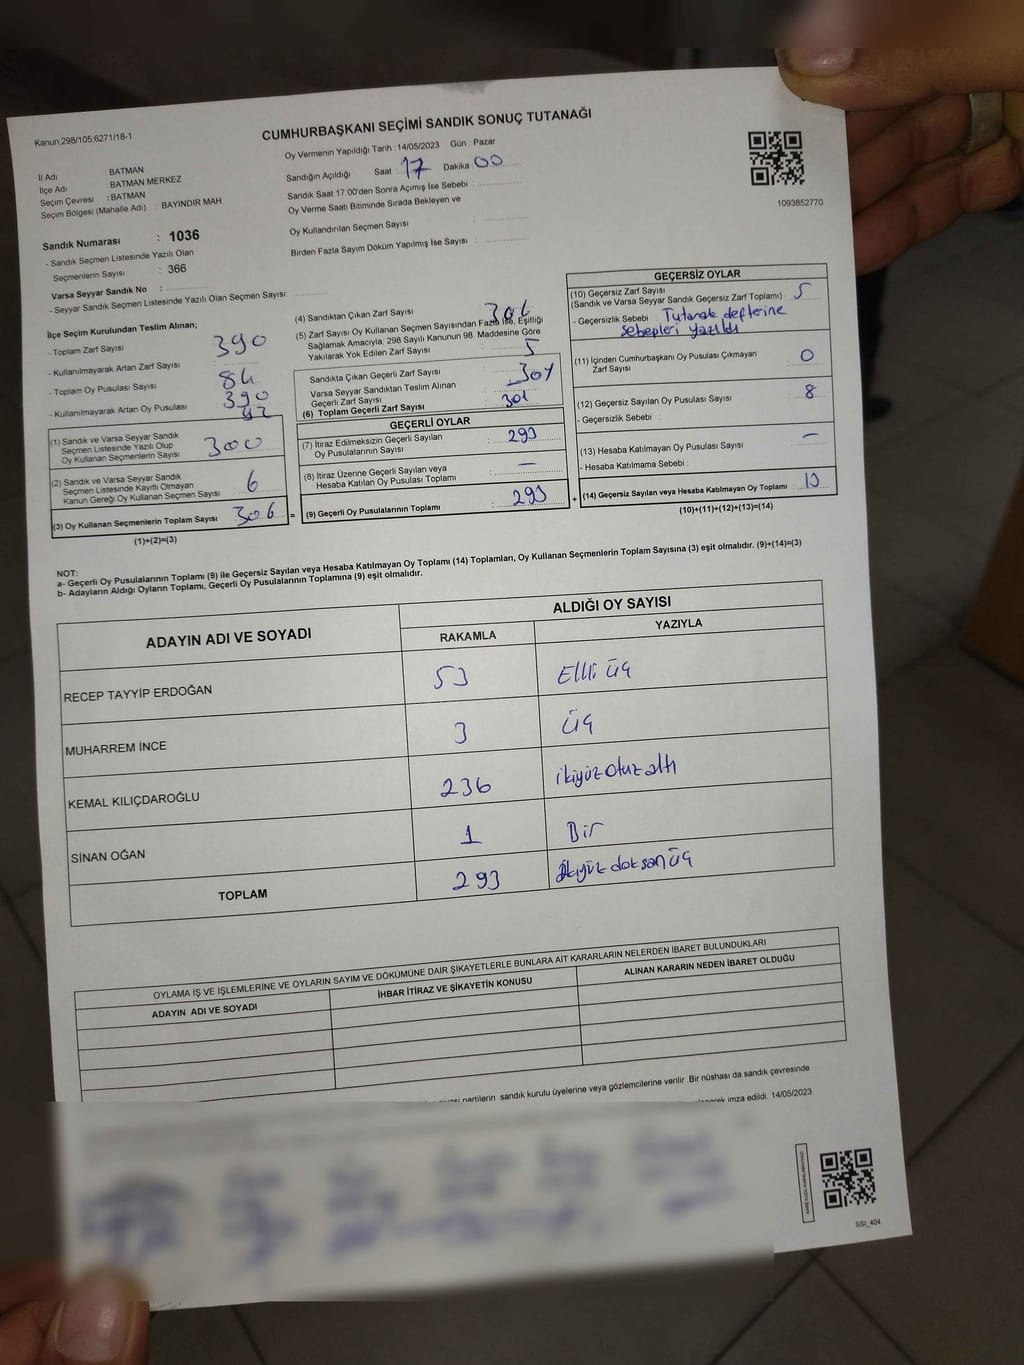 Kanun:298/105;6271/18-1
CUMHURBAŞKANI SEÇİMİ SANDIK SONUÇ TUTANAĞI
Oy Vermenin Yapıldığı Tarih : 14/05/2023 Gün : Pazar
İl Adı BATMAN
İlçe Adı BATMAN MERKEZ
Seçim Çevresi : BATMAN
Seçim Bölgesi (Mahalle Adı) : BAYINDIR MAH
Sandık Numarası : 1036
- Sandık Seçmen Listesinde Yazılı Olan
Seçmenlerin Sayısı : 366
Varsa Seyyar Sandık No :
- Seyyar Sandık Seçmen Listesinde Yazılı Olan Seçmen Sayısı:
Sandığın Açıldığı Saat : 17 Dakika 00
Sandık Saat 17:00'den Sonra Açımış İse Sebebi :
Oy Verme Saati Bitiminde Sırada Bekleyen ve
Oy Kullandırılan Seçmen Sayısı :
Birden Fazla Sayım Döküm Yapılmış İse Sayısı :
1093852770
İlçe Seçim Kurulundan Teslim Alınan;
- Toplam Zarf Sayısı : 390
- Kullanılmayarak Artan Zarf Sayısı : 84
- Toplam Oy Pusulası Sayısı : 390
- Kullanılmayarak Artan Oy Pusulası
(1) Sandık ve Varsa Seyyar Sandık
Seçmen Listesinde Yazılı Olup
Oy Kullanan Seçmenlerin Sayısı : 300
(2) Sandık ve Varsa Seyyar Sandık
Seçmen Listesinde Kayıtlı Olmayan
Kanun Gereği Oy Kullanan Seçmen Sayısı : 6
(3) Oy Kullanan Seçmenlerin Toplam Sayısı 306 =
(1)+(2)=(3)
(4) Sandıktan Çıkan Zarf Sayısı : 306
(5) Zarf Sayısı Oy Kullanan Seçmen Sayısından Fazla İse, Eşitliği
Sağlamak Amacıyla; 298 Sayılı Kanunun 98. Maddesine Göre
Yakılarak Yok Edilen Zarf Sayısı : 5
Sandıkta Çıkan Geçerli Zarf Sayısı : 301
Varsa Seyyar Sandıktan Teslim Alınan
Geçerli Zarf Sayısı :
(6) Toplam Geçerli Zarf Sayısı : 301
GEÇERLİ OYLAR
(7) İtiraz Edilmeksizin Geçerli Sayılan
Oy Pusulalarının Sayısı : 293
(8) İtiraz Üzerine Geçerli Sayılan veya
Hesaba Katılan Oy Pusulası Toplamı : —
(9) Geçerli Oy Pusulalarının Toplamı : 293 +
GEÇERSİZ OYLAR
(10) Geçersiz Zarf Sayısı
(Sandık ve Varsa Seyyar Sandık Geçersiz Zarf Toplamı) : 5
- Geçersizlik Sebebi : Tutanak defterine
sebepleri yazıldı
(11) İçinden Cumhurbaşkanı Oy Pusulası Çıkmayan
Zarf Sayısı : 0
(12) Geçersiz Sayılan Oy Pusulası Sayısı : 8
- Geçersizlik Sebebi :
(13) Hesaba Katılmayan Oy Pusulası Sayısı : —
- Hesaba Katılmama Sebebi :
(14) Geçersiz Sayılan veya Hesaba Katılmayan Oy Toplamı : 13
(10)+(11)+(12)+(13)=(14)
NOT:
a- Geçerli Oy Pusulalarının Toplamı (9) ile Geçersiz Sayılan veya Hesaba Katılmayan Oy Toplamı (14) Toplamları, Oy Kullanan Seçmenlerin Toplam Sayısına (3) eşit olmalıdır. (9)+(14)=(3)
b- Adayların Aldığı Oyların Toplamı, Geçerli Oy Pusulalarının Toplamına (9) eşit olmalıdır.
ADAYIN ADI VE SOYADI ALDIĞI OY SAYISI
RAKAMLA YAZIYLA
RECEP TAYYİP ERDOĞAN 53 Elli üç
MUHARREM İNCE 3 üç
KEMAL KILIÇDAROĞLU 236 ikiyüzotuzaltı
SİNAN OĞAN 1 Bir
TOPLAM 293 ikiyüzdoksanüç
OYLAMA İŞ VE İŞLEMLERİNE VE OYLARIN SAYIM VE DÖKÜMÜNE DAİR ŞİKAYETLERLE BUNLARA AİT KARARLARIN NELERDEN İBARET BULUNDUKLARI
ADAYIN ADI VE SOYADI İHBAR İTİRAZ VE ŞİKAYETİN KONUSU ALINAN KARARIN NEDEN İBARET OLDUĞU
partilerin sandık kurulu üyelerine veya gözlemcilerine verilir. Bir nüshası da sandık çevresinde
imza edildi. 14/05/2023
SSI_404